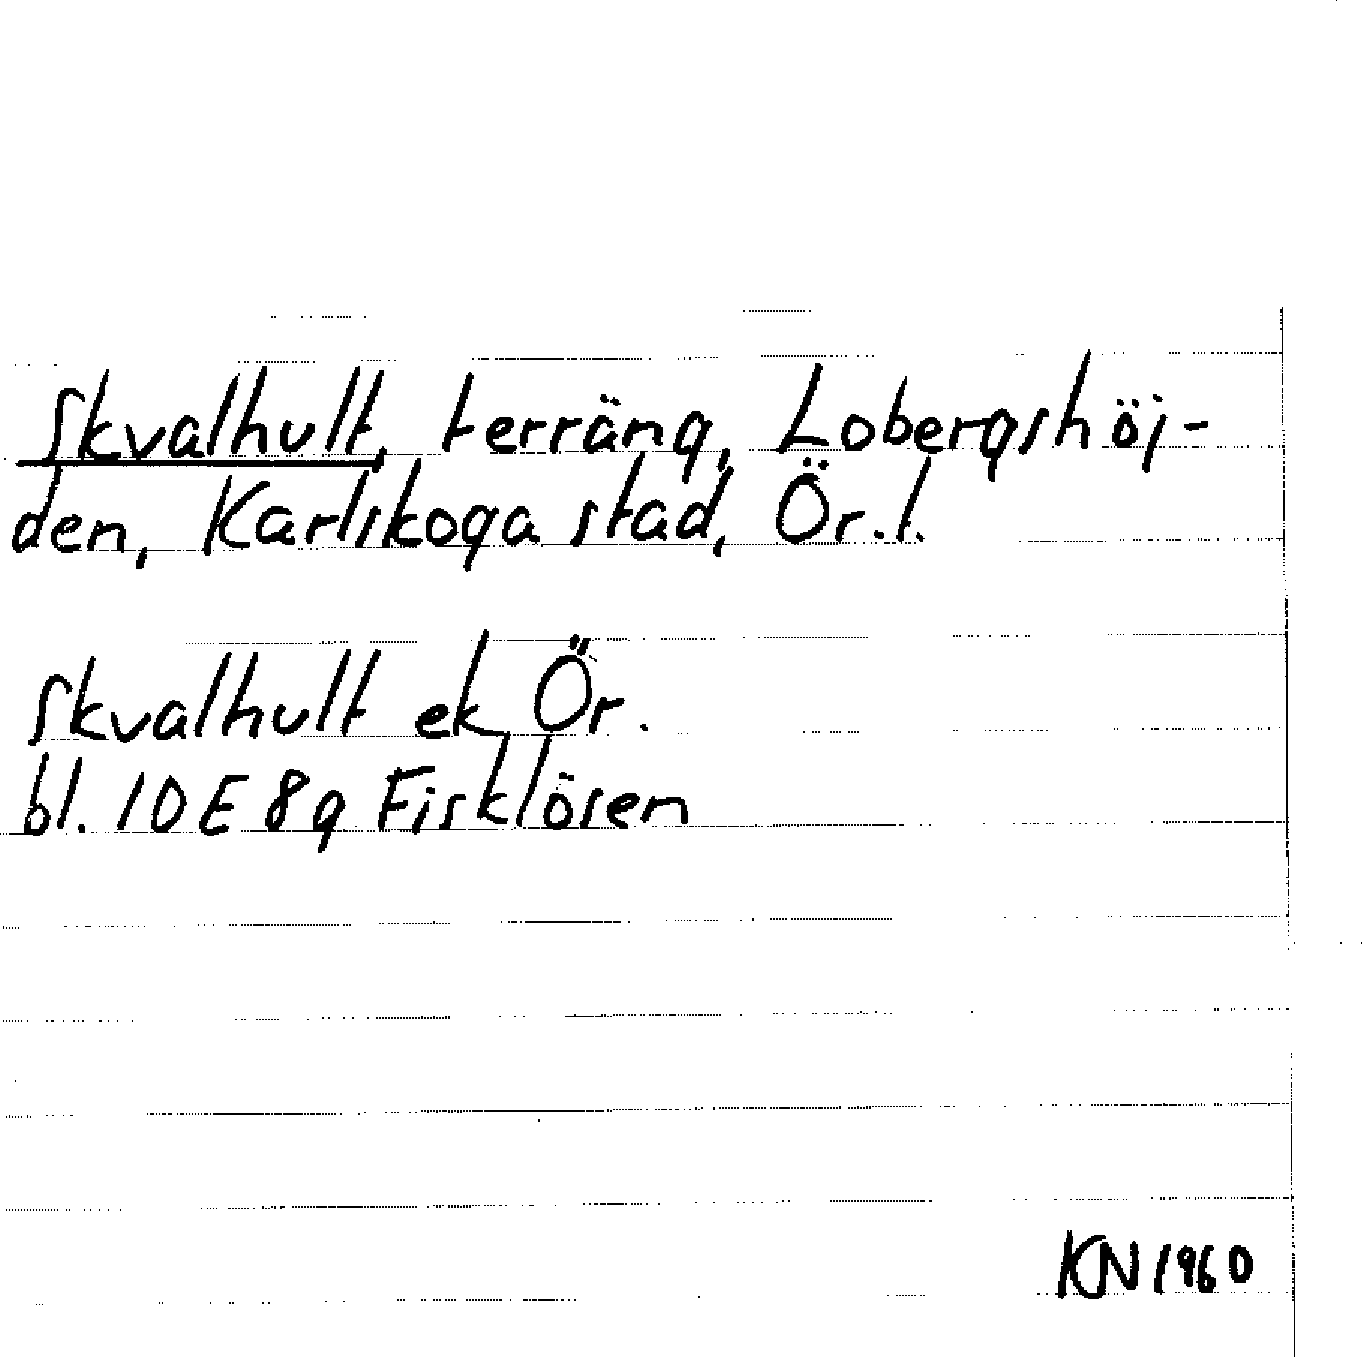 Skvalhult, terräng, Lobergshöj-
den, Karlskoga stad, Ör. l.
Skvalhult ek Ör.
bl. 10E 8g Fisklösen
KN 1960